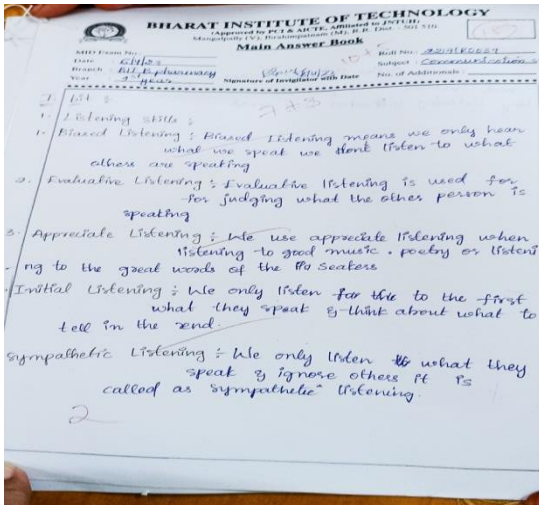 BHARAT INSTITUTE OF TECHNOLOGY
(Approved by PCI & AICTE, Affiliated to JNTUH)
Mangalpally (V), Ibrahimpatnam (M), R.R. Dist. - 501 510
Main Answer Book
MID Exam No.:
Date
Branch :
Year
Signature of Invigilator with Date
Roll No.:
Subject : Communication s
No. of Additionals :
1. Listening skills :
1. Biased Listening : Biased Listening means we only hear
what we speak we dont listen to what
others are speaking
2. Evaluative Listening : Evaluative listening is used for
for judging what the other person is
speating
3. Appreciate Listening : We use appreciate listening when
listening to good music . poetry or listeni
ng to the great words of the Seakess
Initial Listening : We only listen to the first
what they speak & think about what to
tell in the end.
Sympathetic Listening : We only listen what they
speak & ignose others it is
called as sympathetic listening.
2